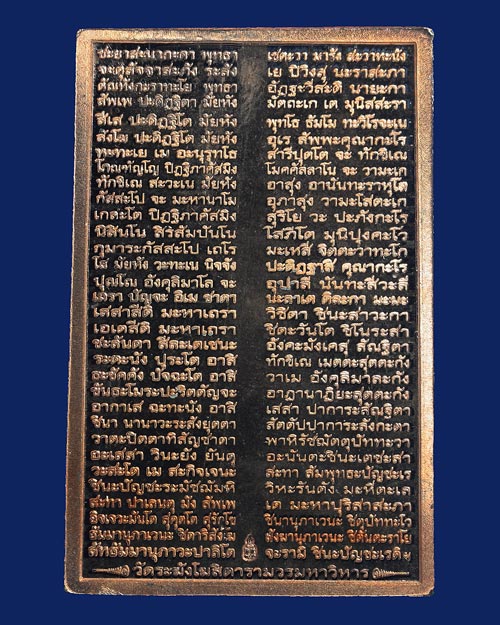 ชะยาสะนากะตา พุทธา เชตะวา มารัง สะวาหะนัง
จะตุสัจจาสะภัง ระสัง เย ปิวิงสุ นะราสะภา
ตัณหังกะราทะโย พุทธา อัฏฐะวีสะติ นายะกา
สัพเพ ปะติฏฐิตา มัยหัง มัตถะเก เต มุนิสสะรา
สีเส ปะติฏฐิโต มัยหัง พุทโธ ธัมโม ทะวิโรจะเน
สังโฆ ปะติฏฐิโต มัยหัง อุเร สัพพะคุณากะโร
หะทะเย เม อะนุรุทโธ สารีปุตโต จะ ทักขิเณ
โกณฑัญโญ ปิฏฐิภาคัสมิง โมคคัลลาโน จะ วามะเก
ทักขิเณ สะวะเน มัยหัง อาสุง อานันทะราหุโล
กัสสะโป จะ มะหานาโม อุภาสุง วามะโสตะเก
เกสะโต ปิฏฐิภาคัสมิง สุริโย วะ ปะภังกะโร
นิสินโน สิริสัมปันโน โสภิโต มุนิปุงคะโว
กุมาระกัสสะโป เถโร มะเหสี จิตตะวาทะโก
โส มัยหัง วะทะเน นิจจัง ปะติฏฐาสิ คุณากะโร
ปุณโณ อังคุลิมาโล จะ อุปาลี นันทะสีวะลี
เถรา ปัญจะ อิเม ชาตา นะลาเต ติละกา มะมะ
เสสาสีติ มะหาเถรา วิชิตา ชินะสาวะกา
เอเตสีติ มะหาเถรา ชิตะวันโต ชิโนระสา
ชะลันตา สีละเตเชนะ อังคะมังเคสุ สัณฐิตา
ระตะนัง ปุระโต อาสิ ทักขิเณ เมตตะสุตตะกัง
ธะชัคคัง ปัจฉะโต อาสิ วาเม อังคุลิมาละกัง
ขันธะโมระปะริตตัญจะ อาฏานาฏิยะสุตตะกัง
อากาเส ฉะทะนัง อาสิ เสสา ปาการะสัณฐิตา
ชินา นานาวะระสังยุตตา สัตตัปปาการะลังกะตา
วาตะปิตตาทิสัญชาตา พาหิรัชฌัตตุปัททะวา
อะเสสา วินะยัง ยันตุ อะนันตะชินะเตชะสา
วะสะโต เม สะกิจเจนะ สะทา สัมพุทธะปัญชะเร
ชินะปัญชะระมัชฌัมหิ วิหะรันตัง มะหีตะเล
สะทา ปาเลนตุ มัง สัพเพ เต มะหาปุริสาสะภา
อิจเจวะมันโต สุคุตโต สุรักโข ชินานุภาเวนะ ชิตุปัททะโว
ธัมมานุภาเวนะ ชิตาริสังโฆ สังฆานุภาเวนะ ชิตันตะราโย
สัทธัมมานุภาวะปาลิโต จะรามิ ชินะปัญชะเรติฯ
วัดระฆังโฆสิตารามวรมหาวิหาร